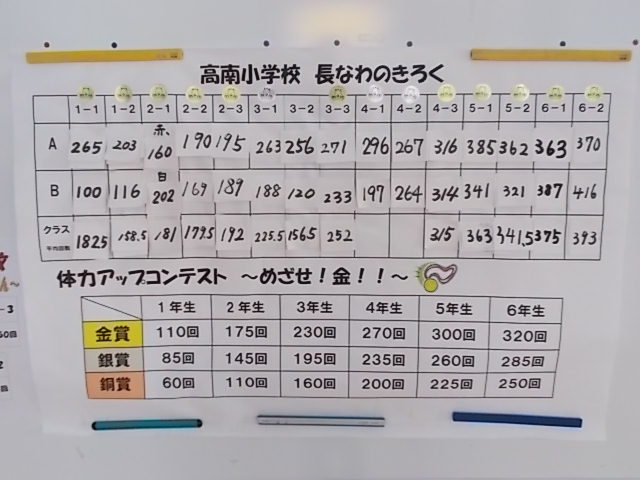 高南小学校 長なわのきろく
1-1 1-2 2-1 2-2 2-3 3-1 3-2 3-3 4-1 4-2 4-3 5-1 5-2 6-1 6-2
A 265 203 赤、160 190 195 263 256 271 296 267 316 385 362 363 370
B 100 116 白 202 169 189 188 120 233 197 264 314 341 321 387 416
クラス平均回数 182.5 158.5 181 179.5 192 225.5 156.5 252 315 363 341.5 375 393
体力アップコンテスト ～めざせ！金！！～
1年生 2年生 3年生 4年生 5年生 6年生
金賞 110回 175回 230回 270回 300回 320回
銀賞 85回 145回 195回 235回 260回 285回
銅賞 60回 110回 160回 200回 225回 250回